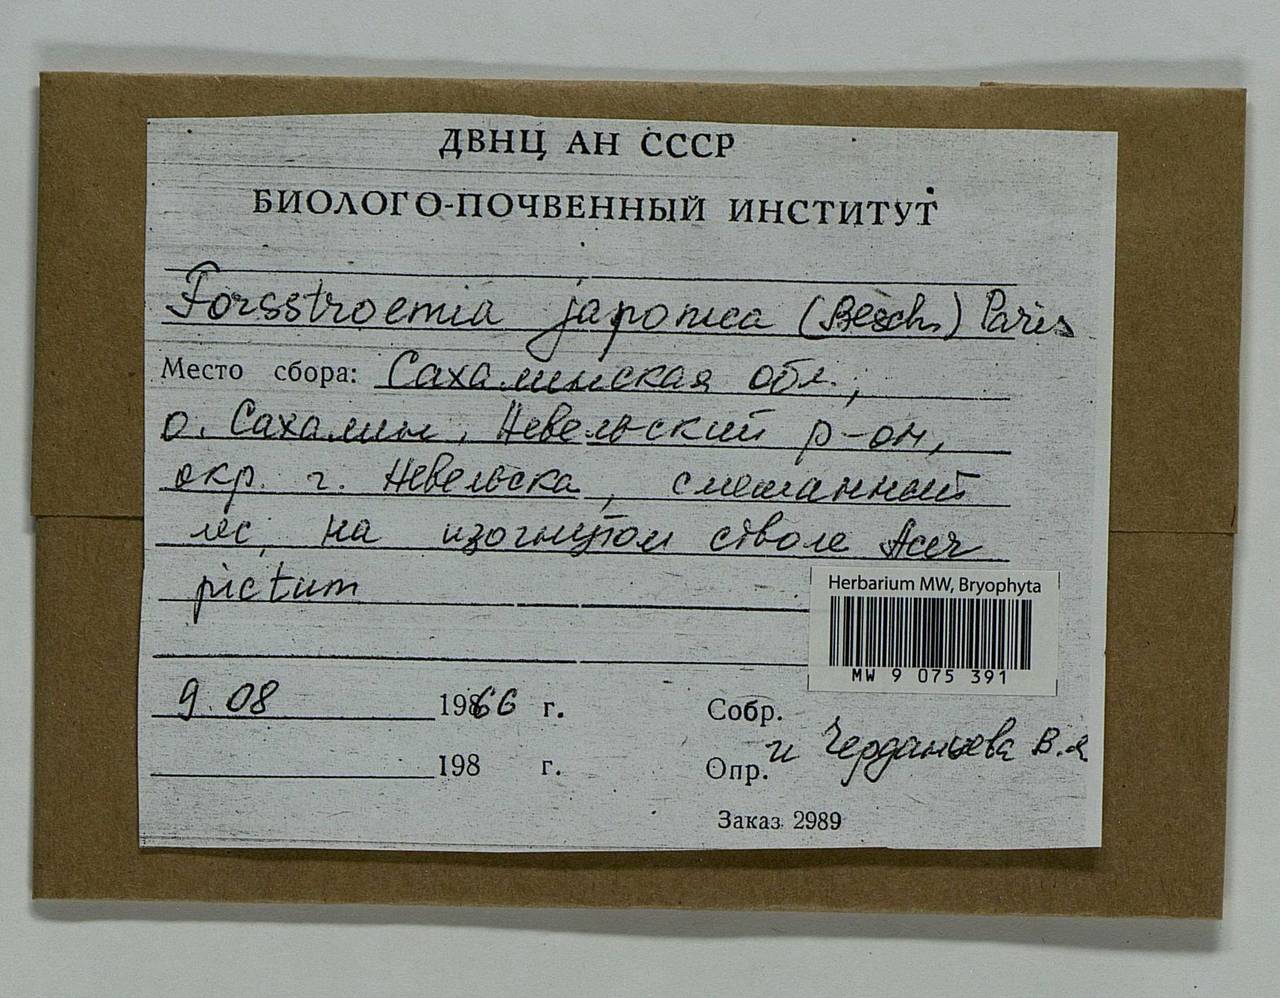 ДВНЦ АН СССР
БИОЛОГО-ПОЧВЕННЫЙ ИНСТИТУТ
Forsstroemia japonica (Besch.) Paris
Место сбора: Сахалинская обл.,
о. Сахалин, Невельский р-он,
окр. г. Невельска, смешанный
лес, на изогнутом стволе Acer
pictum
Herbarium MW, Bryophyta
MW 9 075 391
9.08 1966 г. Собр.
и Черданцева В.Я
198 г. Опр.
Заказ 2989